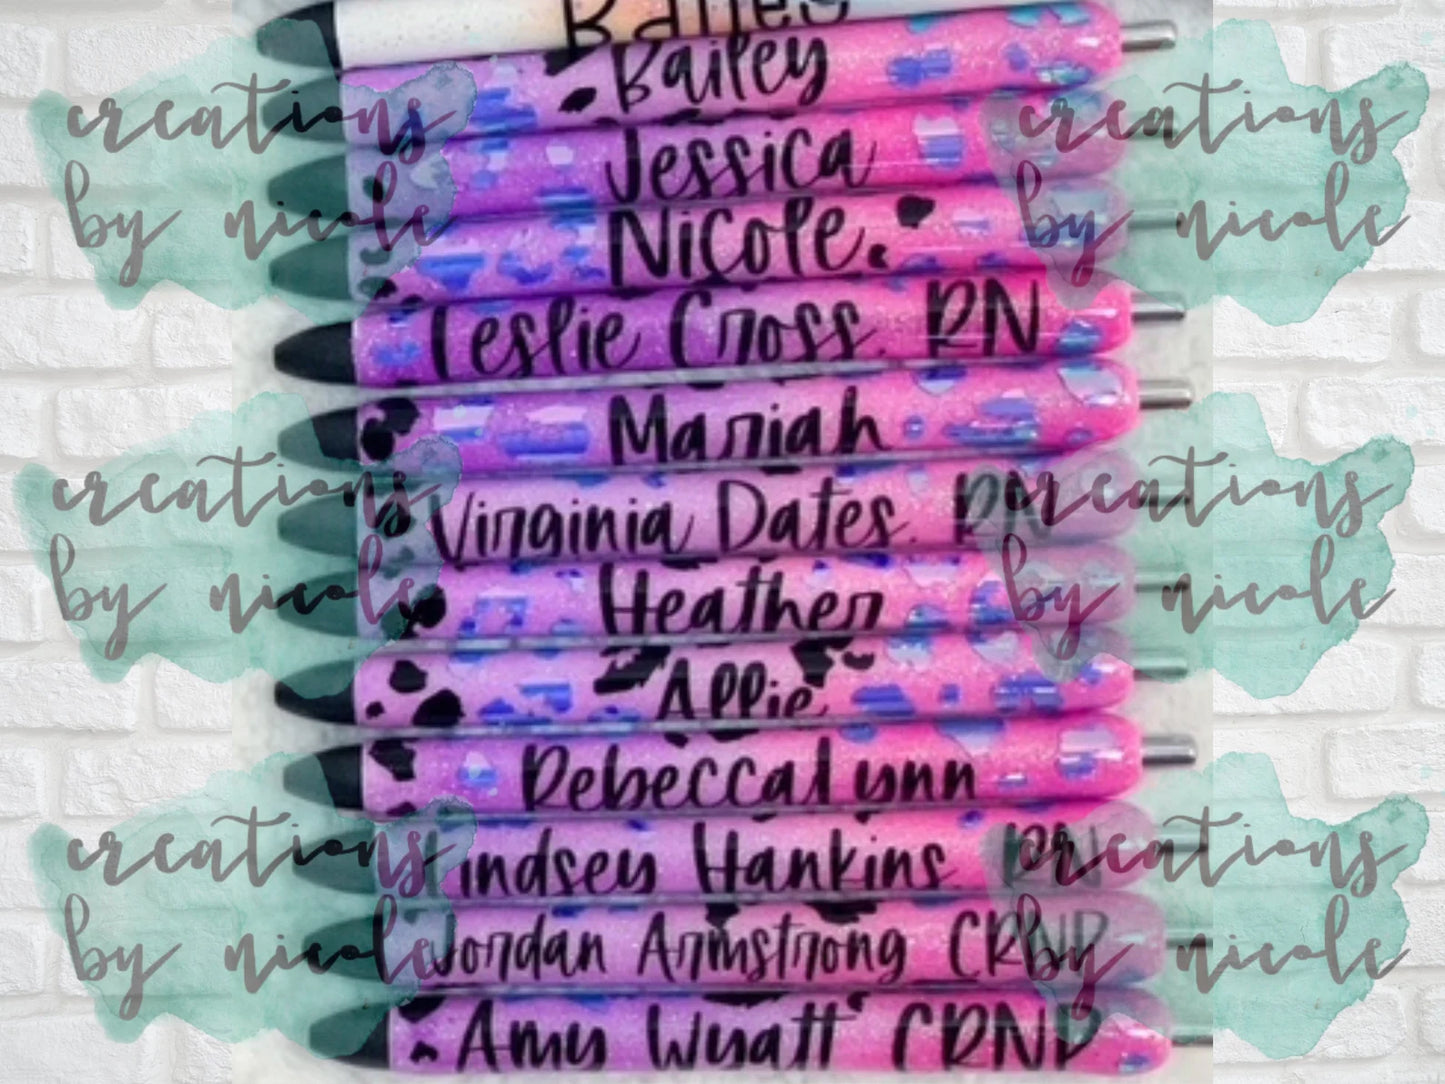 Bailey
Bailey
Jessica
Nicole
Leslie Cross, RN
Mariah
Virginia Dates, RN
Heather
Allie
RebeccaLynn
Lindsey Hankins, RN
Jordan Armstrong, CRNP
Amy Wyatt CRNP
creations
by nicole
creations
by nicole
creations
by nicole
creations
by nicole
creations
by nicole
creations
by nicole